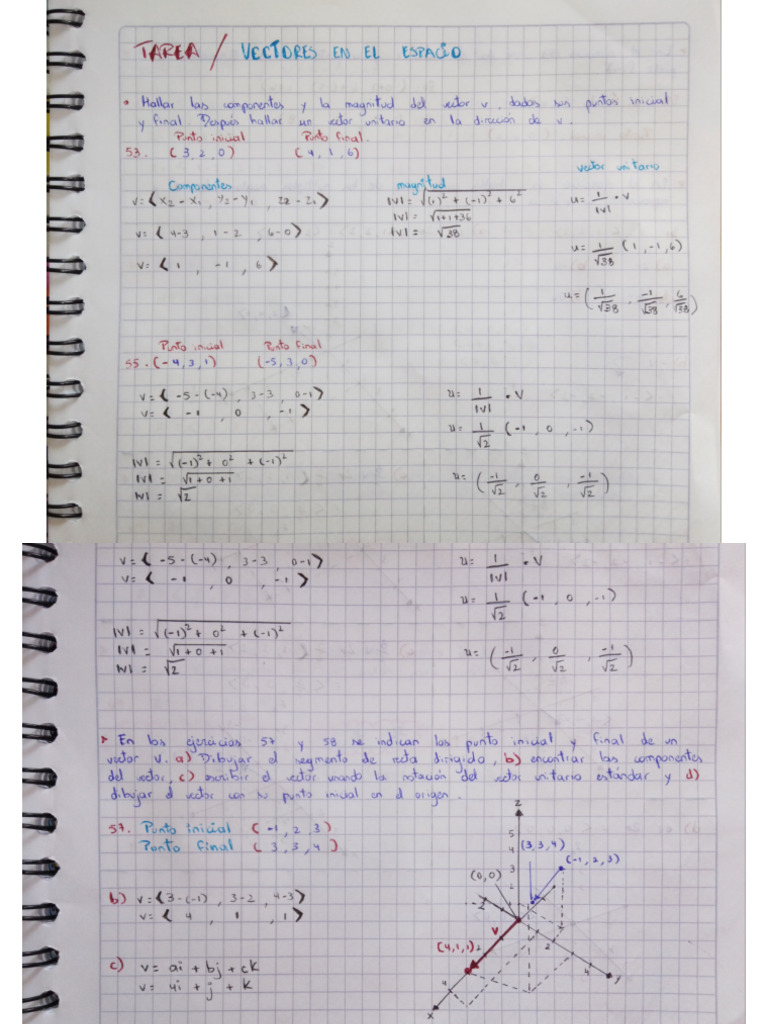 TAREA / VECTORES EN EL ESPACIO
• Hallar las componentes y la magnitud del vector v, dados sus puntos inicial
y final. Después hallar un vector unitario en la dirección de v.
Punto inicial Punto final.
53. (3, 2, 0) (4, 1, 6)
Componentes magnitud vector unitario
v= ⟨x₂ - x₁, y₂ - y₁, z₂ - z₁⟩ |v| = √(1)² + (-1)² + 6² u= 1/|v| • v
v= ⟨4-3, 1-2, 6-0⟩ |v| = √1+1+36 u= 1/√38 (1, -1, 6)
v= ⟨1, -1, 6⟩ |v| = √38 u= (1/√38, -1/√38, 6/√38)
Punto inicial Punto final
55. (-4, 3, 1) (-5, 3, 0)
v= ⟨-5-(-4), 3-3, 0-1⟩ u= 1/|v| • v
v= ⟨-1, 0, -1⟩ u= 1/√2 (-1, 0, -1)
|v| = √(-1)² + 0² + (-1)² u= (-1/√2, 0/√2, -1/√2)
|v| = √1 + 0 + 1
|v| = √2
v= ⟨-5-(-4), 3-3, 0-1⟩ u= 1/|v| • v
v= ⟨-1, 0, -1⟩ u= 1/√2 (-1, 0, -1)
|v| = √(-1)² + 0² + (-1)² u= (-1/√2, 0/√2, -1/√2)
|v| = √1 + 0 + 1
|v| = √2
En los ejercicios 57 y 58 se indican los punto inicial y final de un
vector v. a) Dibujar el segmento de recta dirigido, b) encontrar las componentes
del vector, c) escribir el vector usando la notación del vector unitario estándar y d)
dibujar el vector con su punto inicial en el origen.
57. Punto inicial (-1, 2, 3)
Punto final (3, 3, 4)
b) v= ⟨3-(-1), 3-2, 4-3⟩
v= ⟨4, 1, 1⟩
c) v= ai + bj + ck
v= 4i + j + k
z
5
4
3
2
(3, 3, 4)
(-1, 2, 3)
(0,0)
-2
v
(4,1,1)
2
2
4
4
x
y